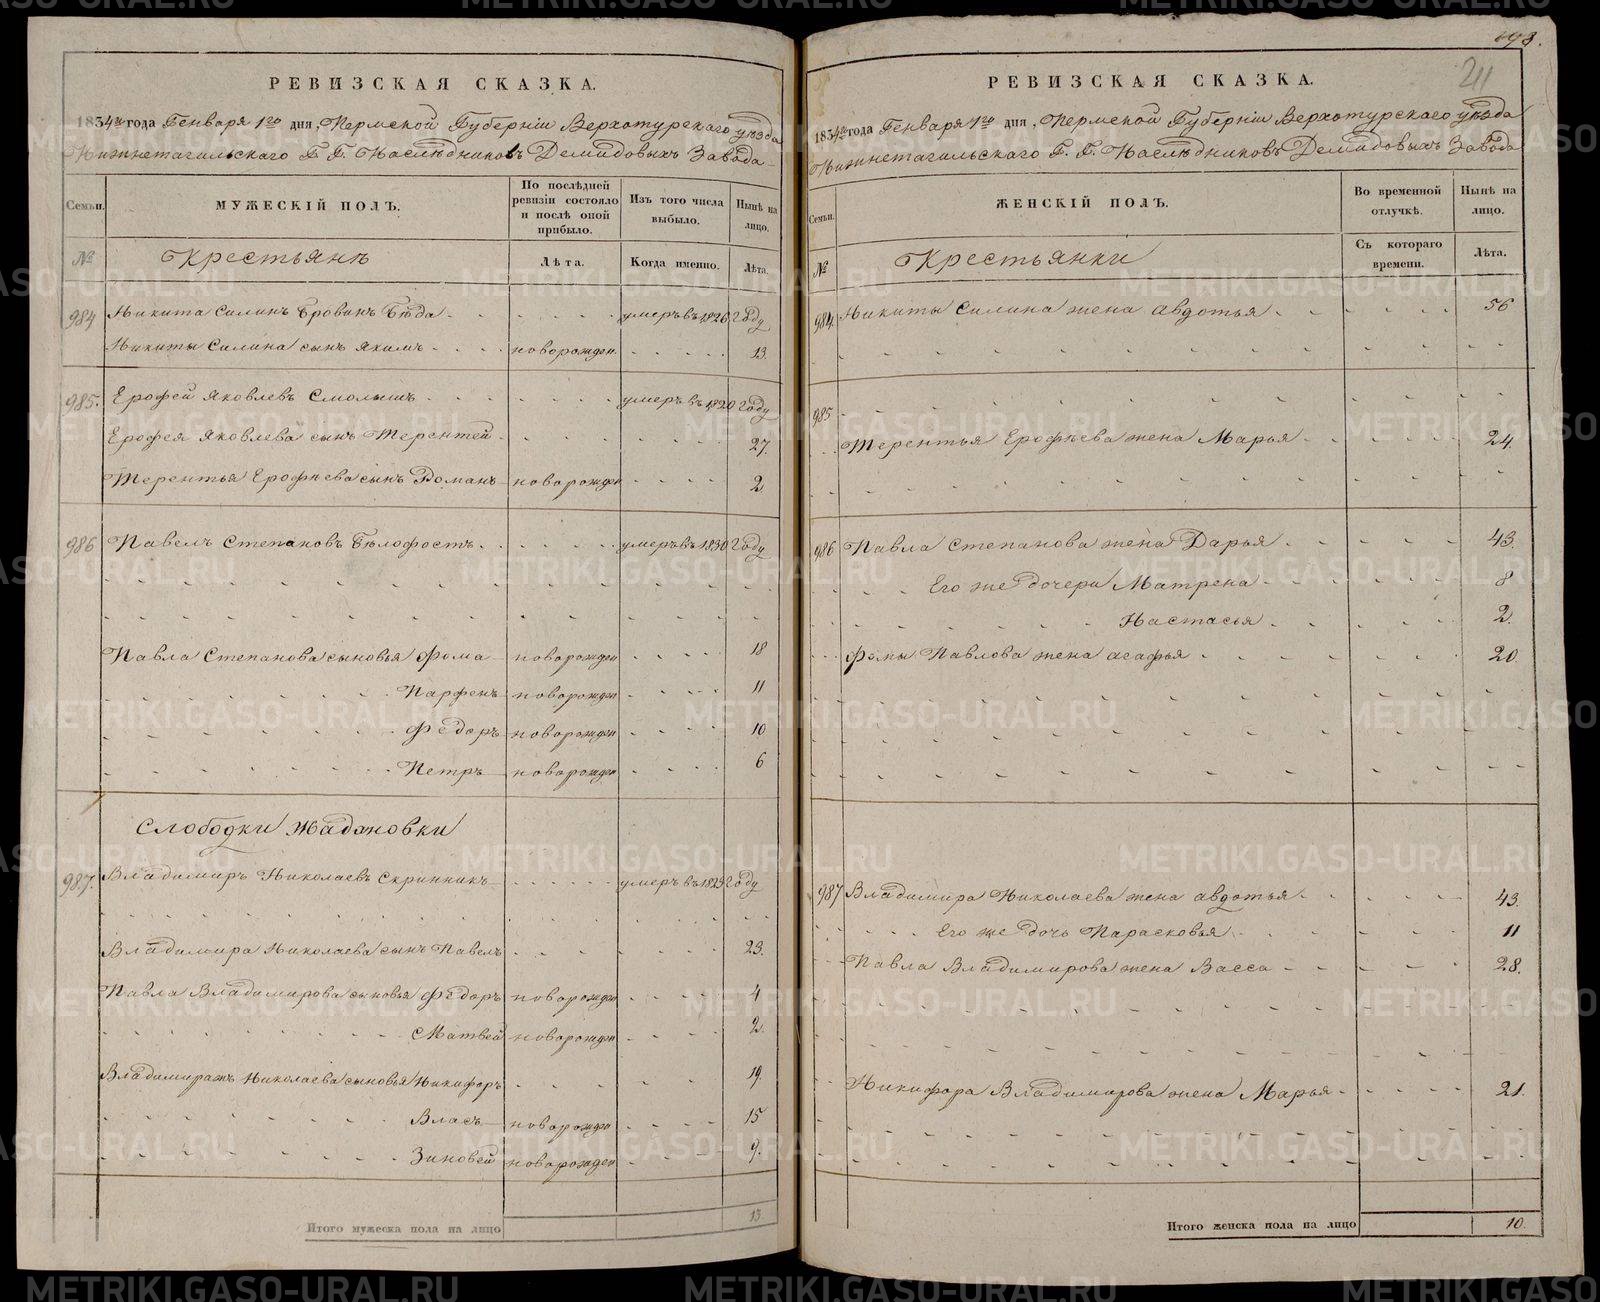 РЕВИЗСКАЯ СКАЗКА.
1834го года Генваря 1го дня, Пермской Губернiи Верхотурскаго уѣзда
Нижнетагильскаго Г. Г. Наслѣдниковъ Демидовыхъ Завода
Семьи.
МУЖЕСКIЙ ПОЛЪ.
По послѣдней ревизiи состояло и послѣ оной прибыло.
Изъ того числа выбыло.
Нынѣ на лицо.
№
Крестьянъ
Лѣта.
Когда именно.
Лѣта.
984 Никита Силинъ умеръ въ 1826 Году
Никиты Силина сынъ Якимъ новорожден. 13.
985. Ерофей Яковлевъ умеръ въ 1820 Году
Ерофея Яковлева сынъ Терентей 27.
Терентья Ерофѣева сынъ Романъ новорожден 2
986 Павелъ Степановъ Бѣлофостъ умеръ въ 1830 Году
Павла Степанова сыновья Фома новорожден 18
Парфенъ новорожден 11
Федоръ новорожден 10
Петръ новорожден 6
Слободки Жадановки
987. Владимиръ Николаевъ Скринникъ умеръ въ 1825 Году
Владимира Николаева сынъ Павелъ 23.
Павла Владимирова сыновья Федоръ новорожден 4
Матвей новорожден 2
Николаева сыновья Никифоръ 19.
Власъ новорожден 15
Зиновей новорожден 9.
Итого мужеска пола на лицо 13
698.
211
РЕВИЗСКАЯ СКАЗКА.
1834го года Генваря 1го дня, Пермской Губернiи Верхотурскаго уѣзда
Нижнетагильскаго Г. Г. Наслѣдниковъ Демидовыхъ Завода
Семьи.
ЖЕНСКIЙ ПОЛЪ.
Во временной отлучкѣ.
Нынѣ на лицо.
№
Крестьянки
Съ котораго времени.
Лѣта.
984. Никиты Силина жена Авдотья 56
985
Терентья Ерофѣева жена Марья 24.
986 Павла Степанова жена Дарья 43.
Его же дочери Матрена 8
Настасья 2.
Фомы Павлова жена Агафья 20
987 Владимира Николаева жена Авдотья 43.
Его же дочь Парасковья 11
Павла Владимирова жена Васса 28.
Никифора Владимирова жена Марья 21.
Итого женска пола на лицо 10.
METRIKI.GASO-URAL.RU